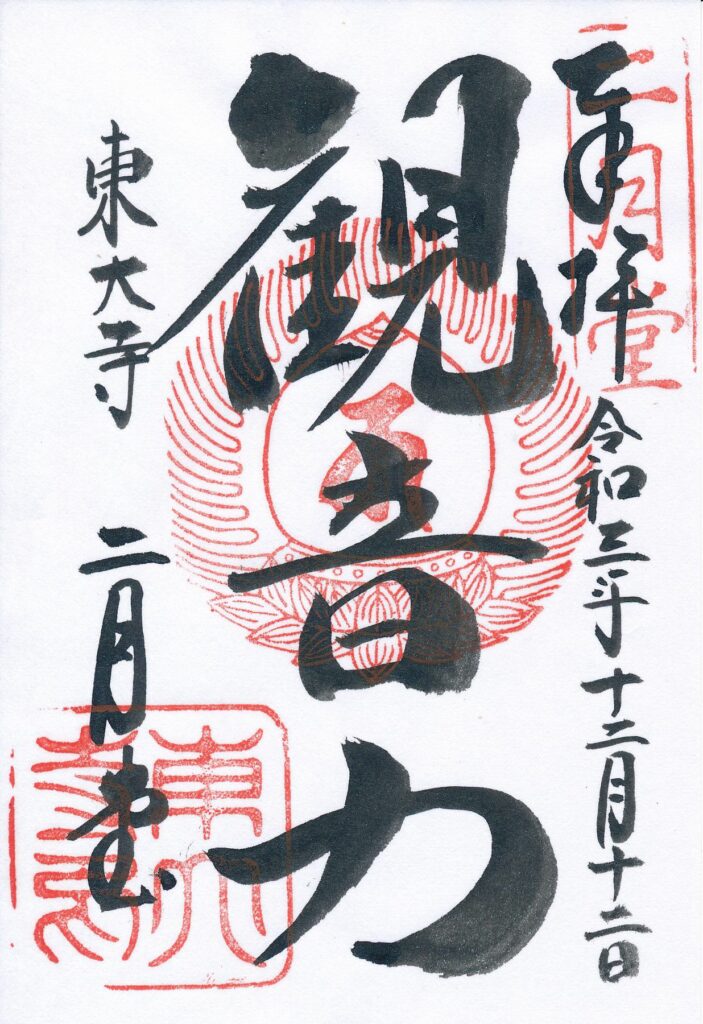 奉拝
二月堂
令和三年十二月十二日
観音力
東大寺
二月堂